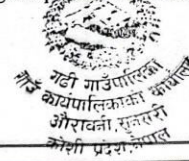 गढी गाउँपालिका
गाउँ कार्यपालिकाको कार्यालय
औराबनी, सुनसरी
कोशी प्रदेश, नेपाल